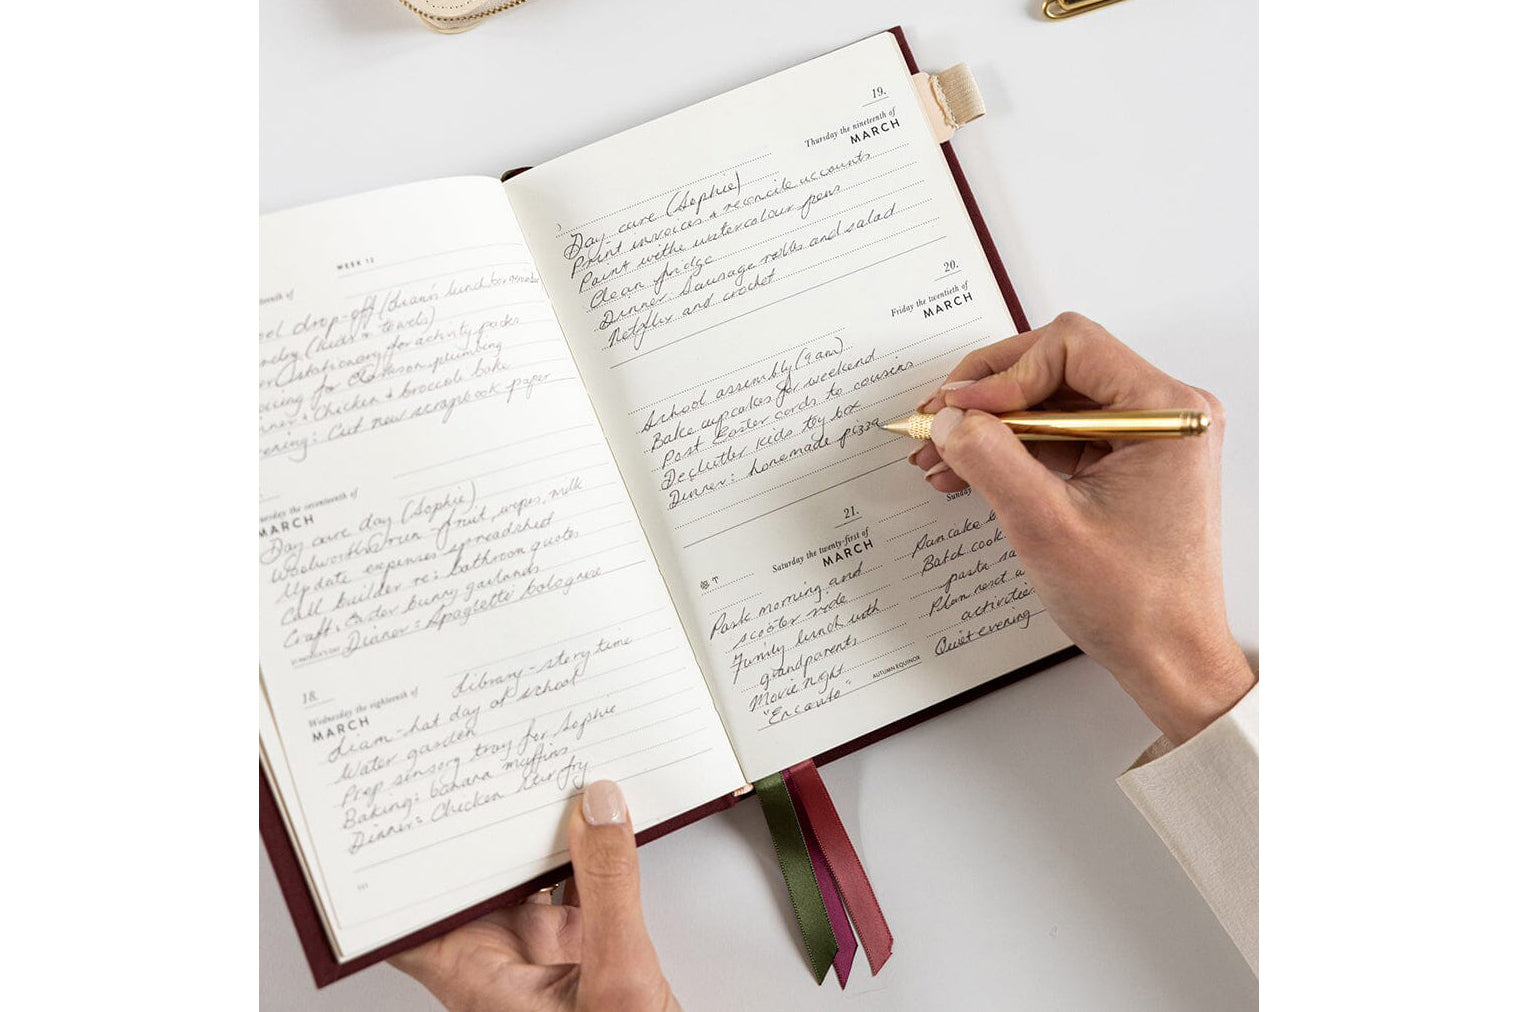 WEEK 12
teenth of
drop-off (Liam's lunch box
(kids + towels)
stationery for activity packs
for Clarkson plumbing
Chicken + broccoli bake
evening: Cut new scrapbook paper
the seventeenth of
MARCH
Day care day (Sophie)
Woolworths run fruit, wipes, milk
Update expenses spreadsheet
Call builder re: bathroom quotes
Craft: Easter bunny garlands
Dinner: Spaghetti bolognese
18.
Wednesday the eighteenth of
MARCH
Library - story time
Liam - hat day at school
Water garden
Prep sensory tray for Sophie
Baking: banana muffins
Dinner: Chicken stir fry
19.
Thursday the nineteenth of
MARCH
Day-care (Sophie)
Print invoices + reconcile accounts
Paint withe watercolour pens
Clean fridge
Dinner: Sausage rolls and salad
Netflix and crochet
20.
Friday the twentieth of
MARCH
School assembly (9am)
Bake cupcakes for weekend
Post Easter cards to cousins
Declutter kids toy box
Dinner: homemade pizza
21.
Saturday the twenty-first of
MARCH
T
Park morning and
scooter ride
Family lunch with
grandparents
Movie night
"Encanto"
AUTUMN EQUINOX
Sunday
Pancake
Batch cook
pasta
Plan next
activities
Quiet evening